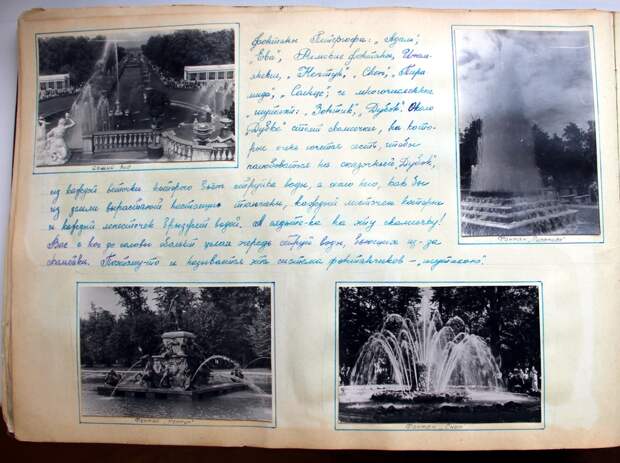 фонтаны Петергофа: „Адам",
„Ева", Римские фонтаны, Италь-
янские, „Нептун", „Сноп", „Пира
мида", „Солнце", и многочисленные
„шутихи": „Зонтик", „Дубок". Около
„Дубка" стоят скамеечки, на кото-
рые очень хочется сесть, чтобы
полюбоваться на сказочный „Дубок",
из каждой веточки которого бьёт струйка воды, а около него, как бы
из земли вырастают настоящие тюльпаны, каждый лепесток которых
и каждый лепесточек брызжет водой. А сядьте-ка на эту скамеечку!
Вас с ног до головы обольёт целая череда струй воды, бьющих из-за
скамейки. Поэтому-то и называется эта система фонтанчиков – „шутихою".
Общий вид
Фонтан „Пирамида"
Фонтан „Нептун"
Фонтан „Сноп"